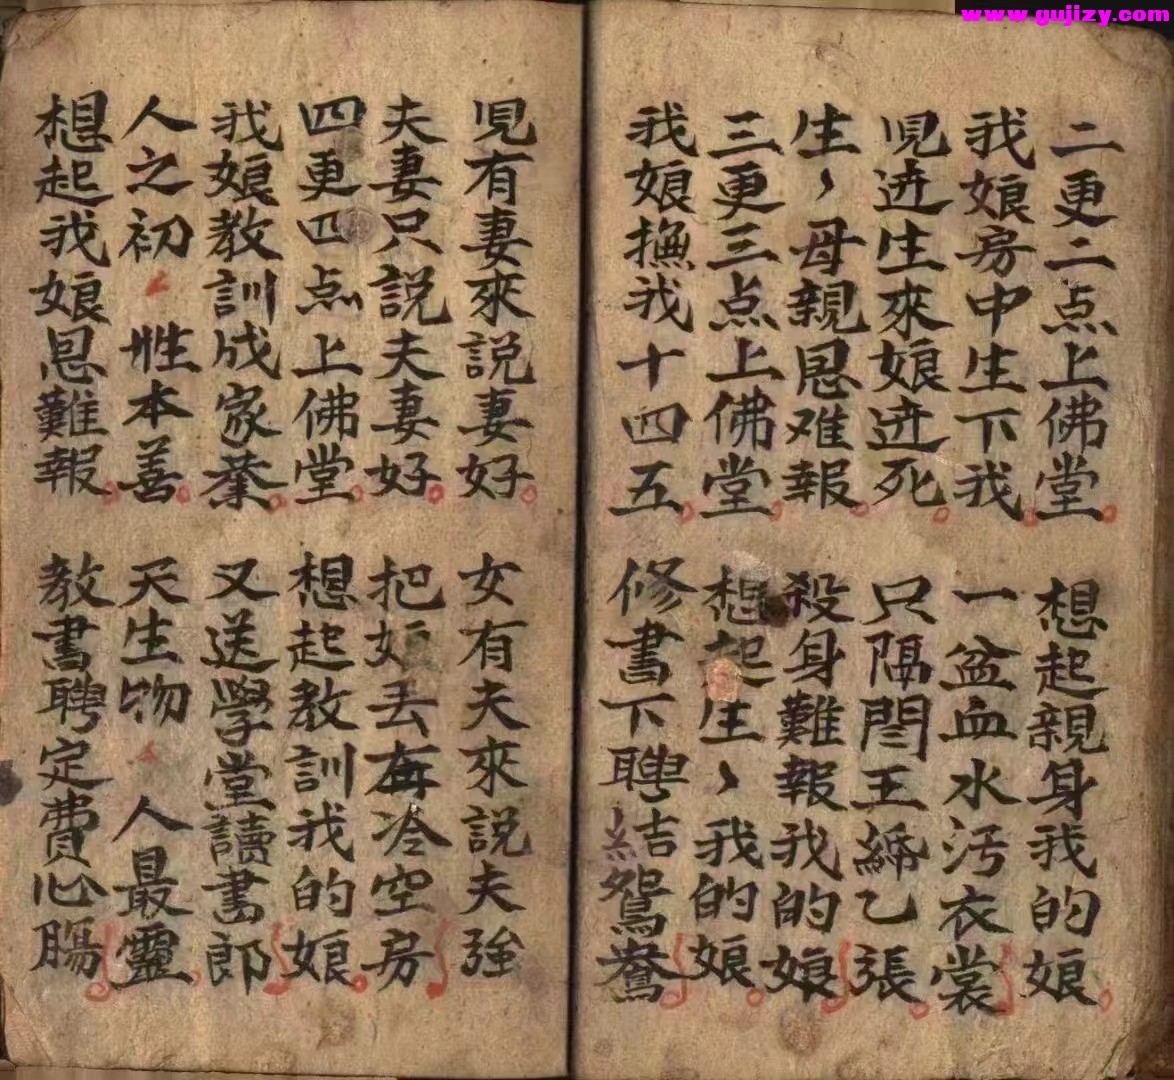 www.gujizy.com
二更二点上佛堂 想起親身我的娘
我娘房中生下我 一盆血水汚衣裳
児迸生來娘迸死 只隔閻王紙乙張
生、母親恩难報 殺身難報我的娘
三更三点上佛堂 想起生、我的娘
我娘撫我十四五 修書下聘結鴛鴦
児有妻來説妻好 女有夫來説夫強
夫妻只説夫妻好 把 丟在冷空房
四更四点上佛堂 想起教訓我的娘
我娘教訓成家業 又送學堂讀書郎
人之初 性本善 天生物 人最靈
想起我娘恩難報 教書聘定費心腸